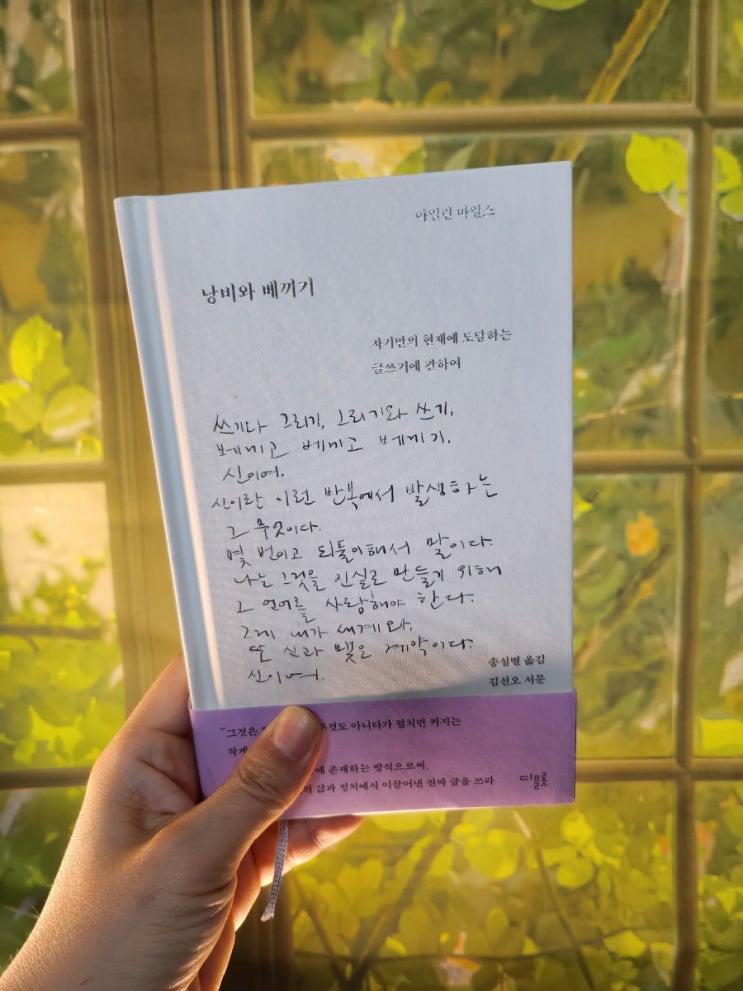 아일린 마일스
낭비와 베끼기
자기만의 현재에 도달하는
글쓰기에 관하여
쓰기나 그리기, 그리기와 쓰기,
베끼고 베끼고 베끼기.
신이여.
신이란 이런 반복에서 발생하는
그 무엇이다.
몇 번이고 되풀이해서 말이다.
나는 그것을 진실로 만들기 위해
그 언어를 사랑해야 한다.
그게 내가 세계와,
또 신과 맺은 계약이다.
신이여.
송섬별 옮김
김선오 서문
"그것은 것도 아니다가 펼치면 커지는
작게
에 존재하는 방식으로써,
의 삶과 정치에서 이끌어낸 진짜 글을 쓰라
디플롯